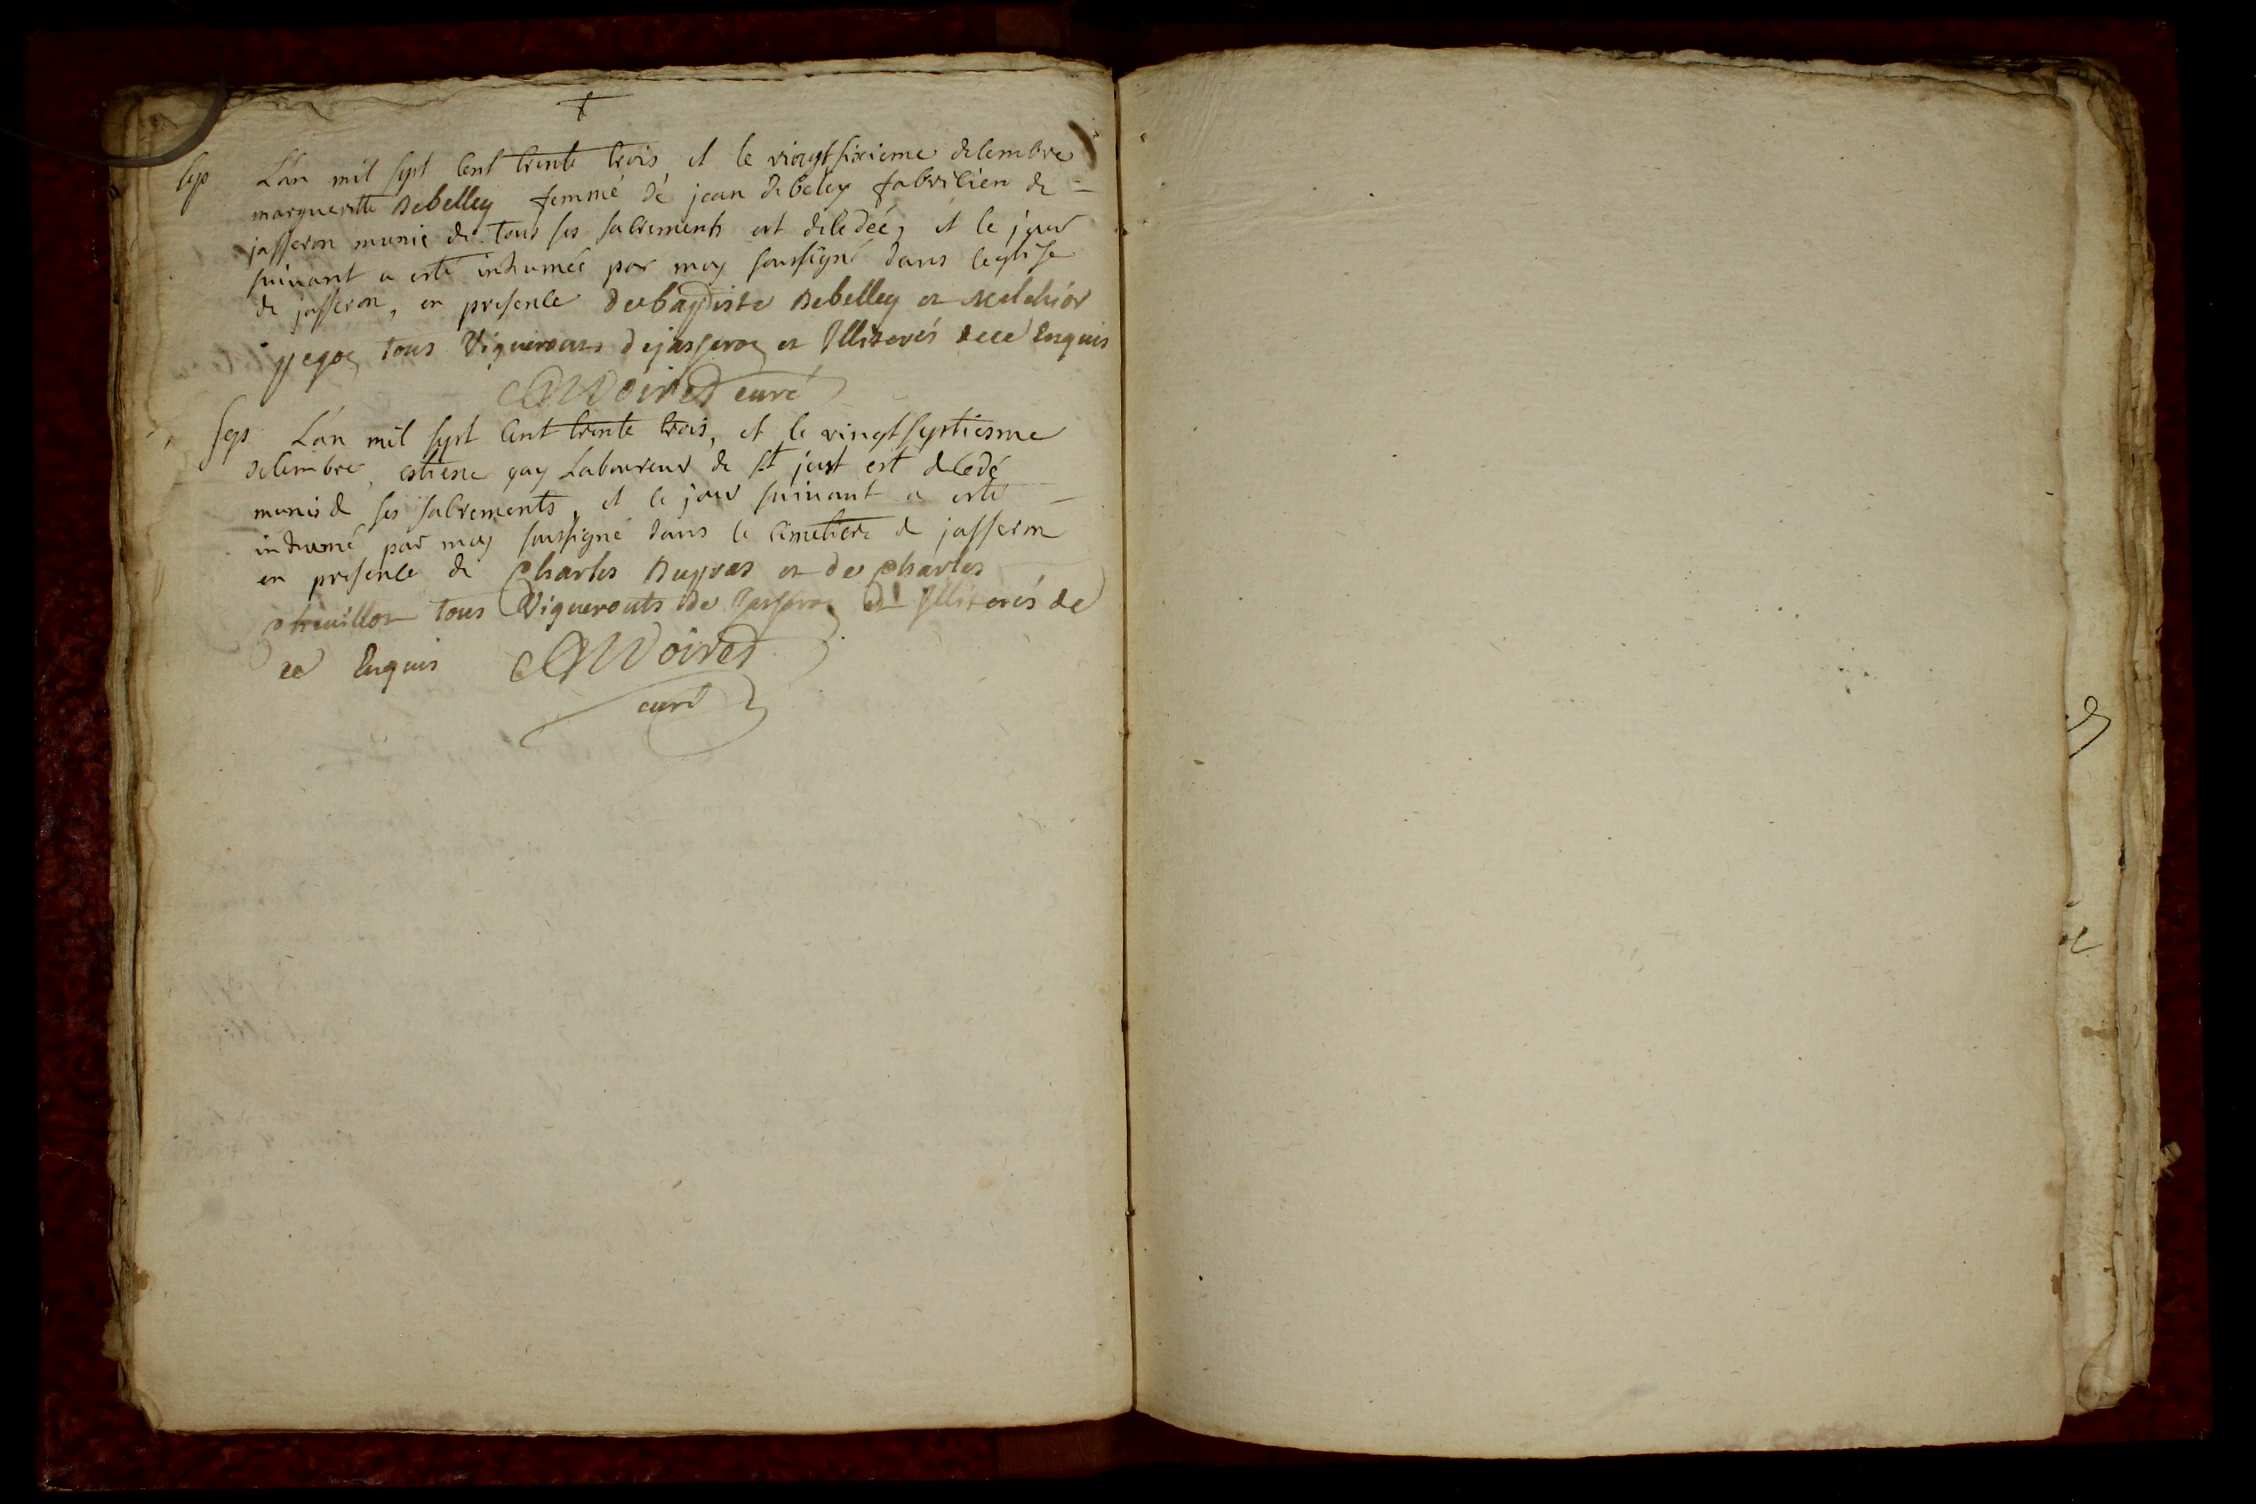 sep L'an mil sept cent trente trois et le vingt sixieme decembre
margueritte Debelley femme de jean debeley fabricien de
jasseron munie de tous ses sacrements est decedée, et le jour
suivant a esté inhumée par moy soussigné dans l'eglise
de jasseron, en presence de baptiste Debelley et Melchior
tous Vignerons de jasseron et Illiterés de ce Enquis
curé
sep L'an mil sept cent trente trois, et le vingt septiesme
decembre, estiene guy Laboureur de st just est decedé
munis de ses sacrements, et le jour suivant a esté
inhumé par moy soussigné dans le cimetiere de jasseron
en presence de Charles Dupras et de Charles
tous Vignerons de Jasseron et Illiterés de
ce Enquis
curé